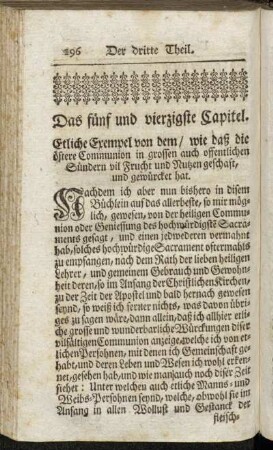 296 Der dritte Theil.
Das fünf und vierzigste Capitel.
Etliche Exempel von dem/ wie daß die
öftere Communion in grossen auch offentlichen
Sündern vil Frucht und Nutzen geschaft,
und gewürcket hat.
Nachdem ich aber nun bishero in disem
Büchlein auf das allerbeste, so mir mög-
lich, gewesen, von der heiligen Commu-
nion oder Geniessung des hochwürdigste Sacra-
ments gesagt, und einen jedwederen vermahnt
hab, solches hochwürdige Sacrament oftermahls
zu empfangen, nach dem Rath der lieben heiligen
Lehrer, und gemeinem Gebrauch und Gewohn-
heit deren, so im Anfang der Christlichen Kirchen,
zu der Zeit der Apostel und bald hernach gewesen
seynd, so weiß ich ferner nichts, was davon übri-
ges zu sagen wäre, dann allein, daß ich allhier etli-
che grosse und wunderbarliche Würckungen diser
vilfältigen Communion anzeige, welche ich von et-
lichen Persohnen, mit denen ich Gemeinschaft ge-
habt, und deren Leben und Wesen ich wohl erken-
net, gesehen hab, und wie man auch noch diser Zeit
siehet: Unter welchen auch etliche Manns- und
Weibs-Persohnen seynd, welche, obwohl sie im
Anfang in allen Wollust und Gestanck der
fleisch-